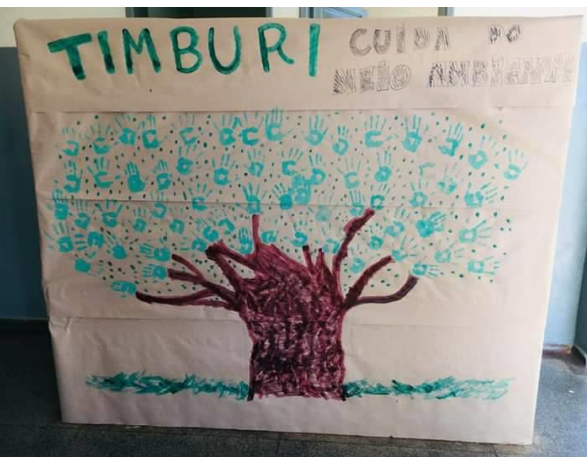 TIMBURI CUIDA DO
MEIO AMBIENTE